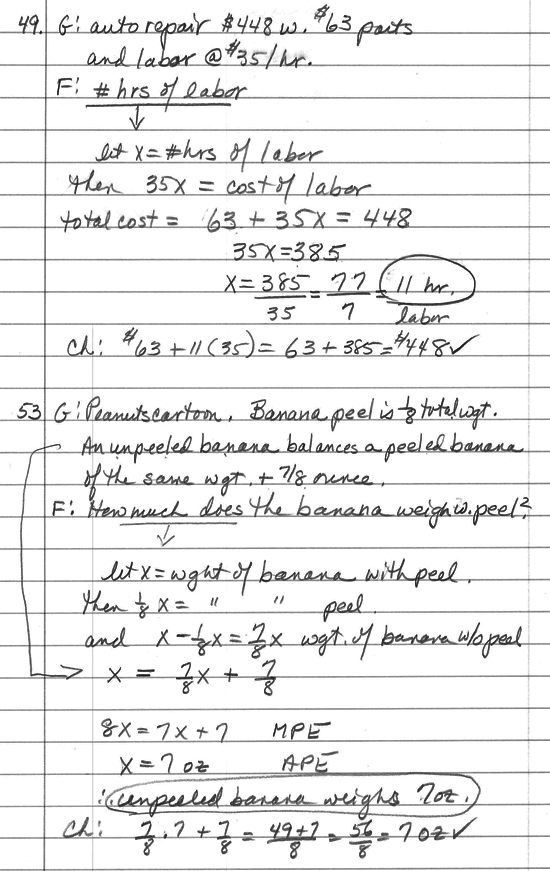 49. G: auto repair $448 w. $63 parts
and labor @ $35/hr.
F: # hrs of labor
let x = # hrs of labor
then 35x = cost of labor
total cost = 63 + 35x = 448
35x = 385
x = 385/35 = 77/7 = 11 hr. labor
Ch: $63 + 11(35) = 63 + 385 = $448 ✓
53 G: Peanuts cartoon. Banana peel is 1/8 total wgt.
An unpeeled banana balances a peeled banana
of the same wgt. + 7/8 ounce.
F: How much does the banana weigh w. peel?
let x = wght of banana with peel.
Then 1/8 x = " " peel
and x - 1/8 x = 7/8 x wgt. of banana w/o peel
x = 7/8 x + 7/8
8x = 7x + 7 MPE
x = 7 oz APE
: unpeeled banana weighs 7 oz.
Ch: 7/8 · 7 + 7/8 = 49+7/8 = 56/8 = 7 oz ✓